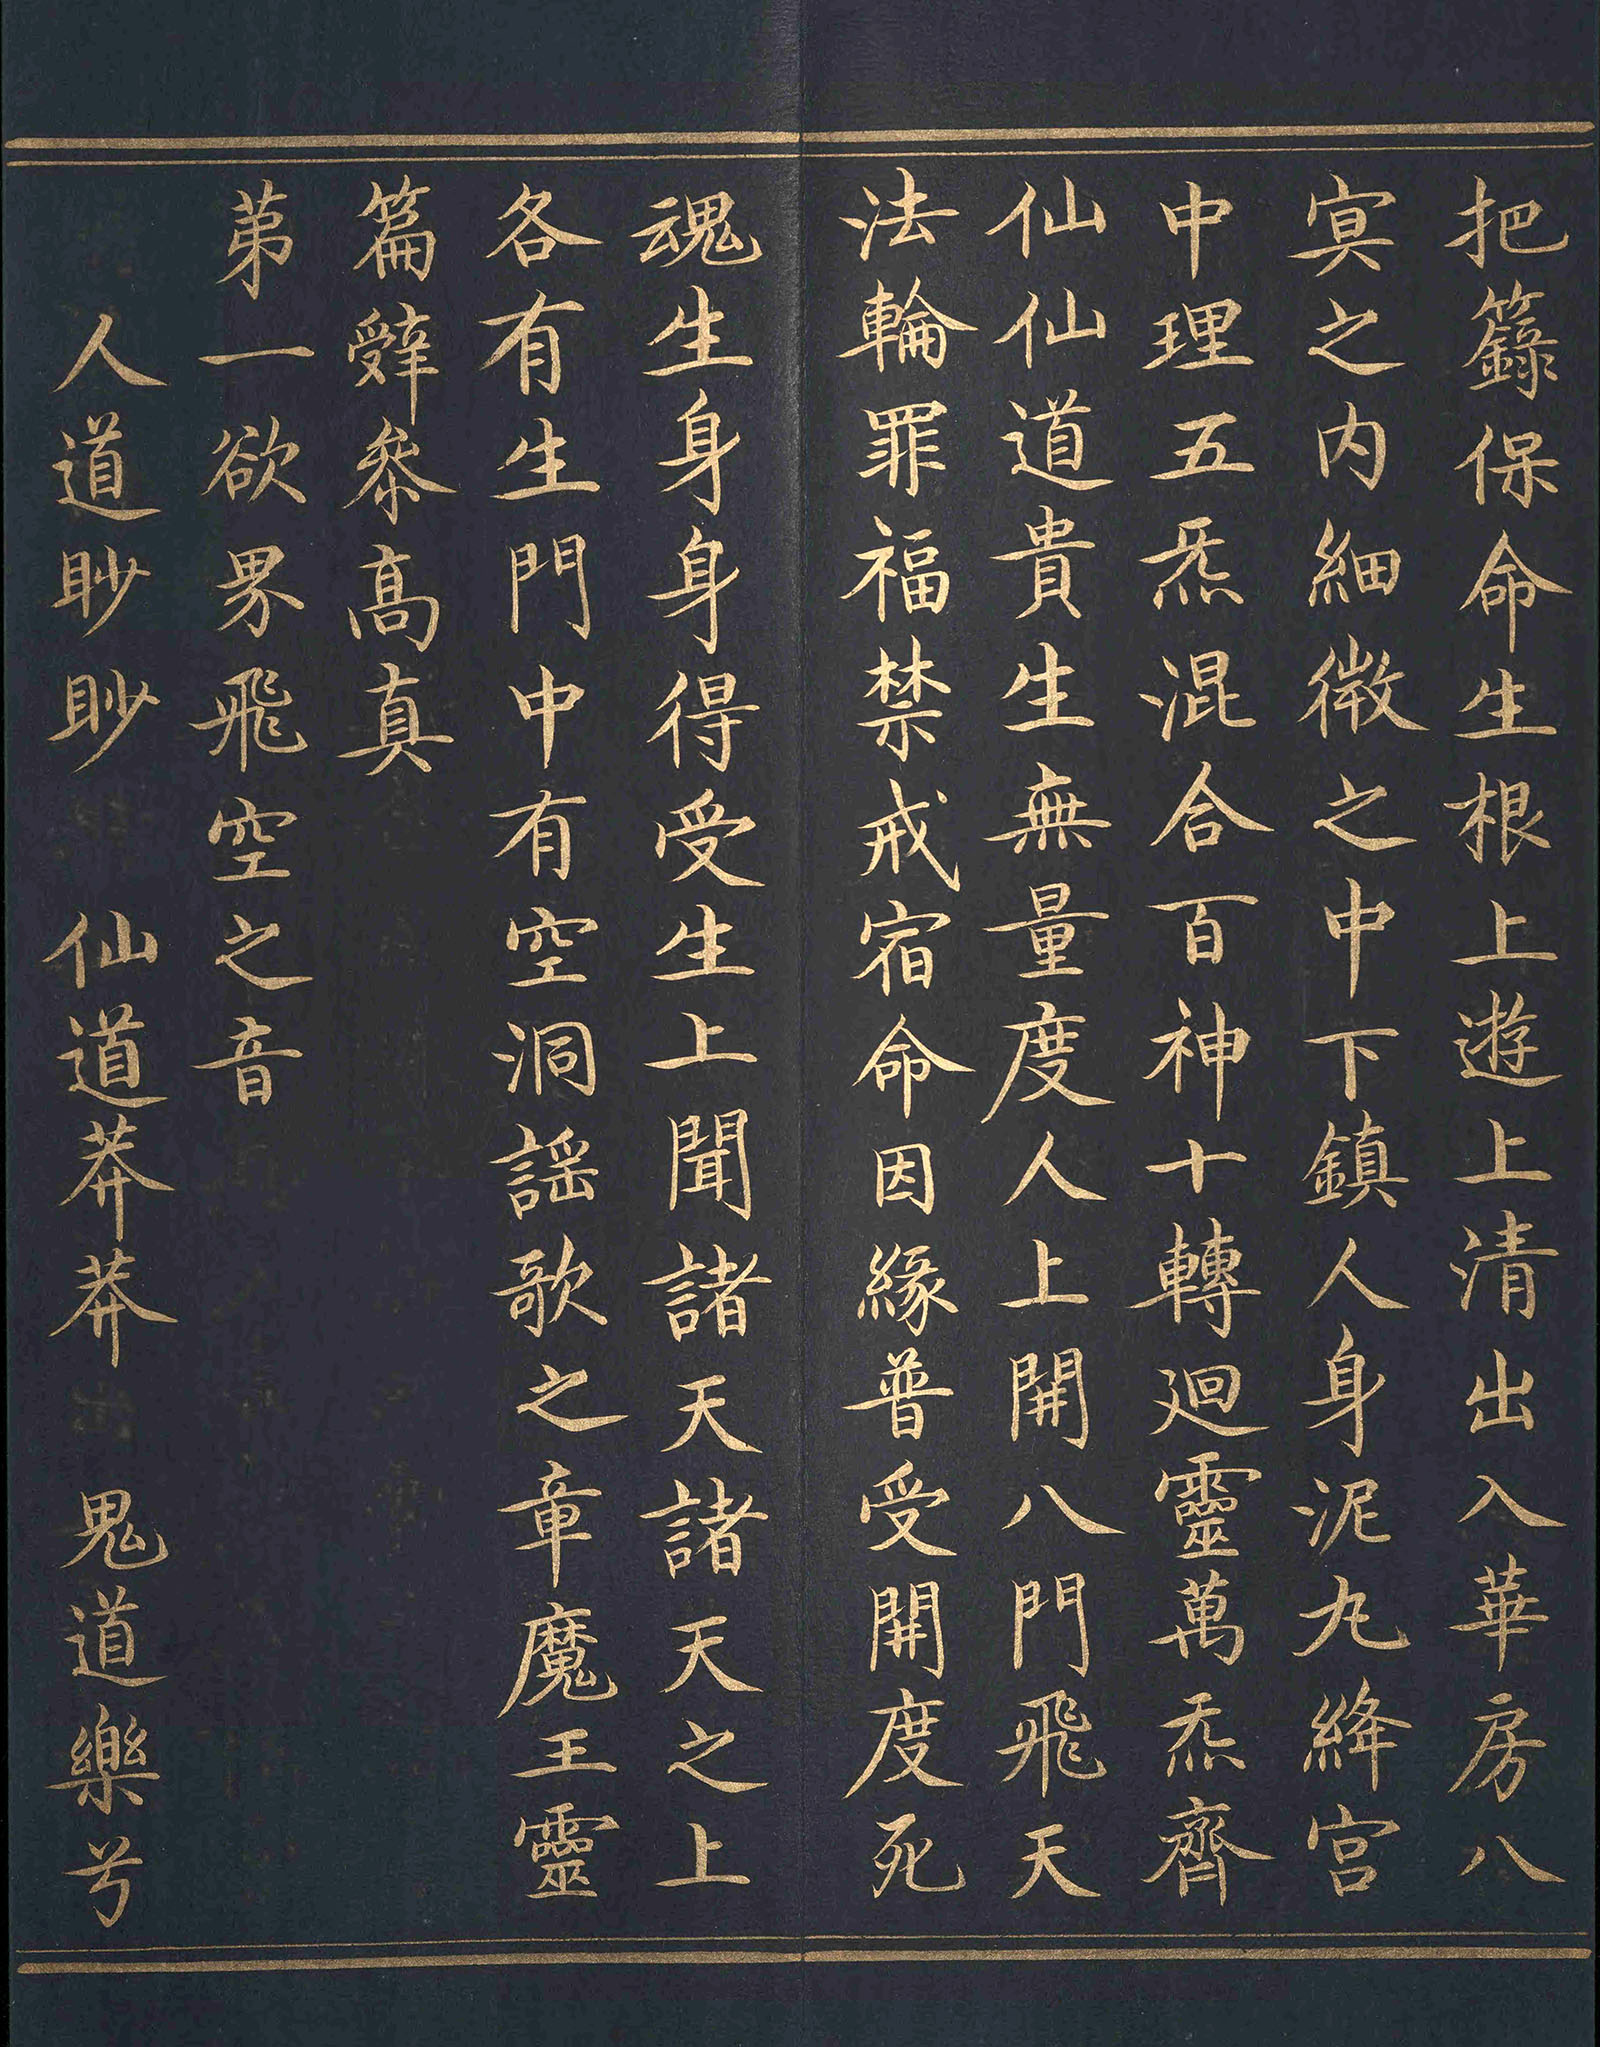 把籙保命生根上遊上清出入華房八
冥之内細微之中下鎮人身泥丸絳宮
中理五炁混合百神十轉迴靈萬炁齊
仙仙道貴生無量度人上開八門飛天
法輪罪福禁戒宿命因緣普受開度死
魂生身身得受生上聞諸天諸天之上
各有生門中有空洞謡歌之章魔王靈
篇辤叅髙真
苐一欲界飛空之音
人道眇眇 仙道莽莽 鬼道樂兮